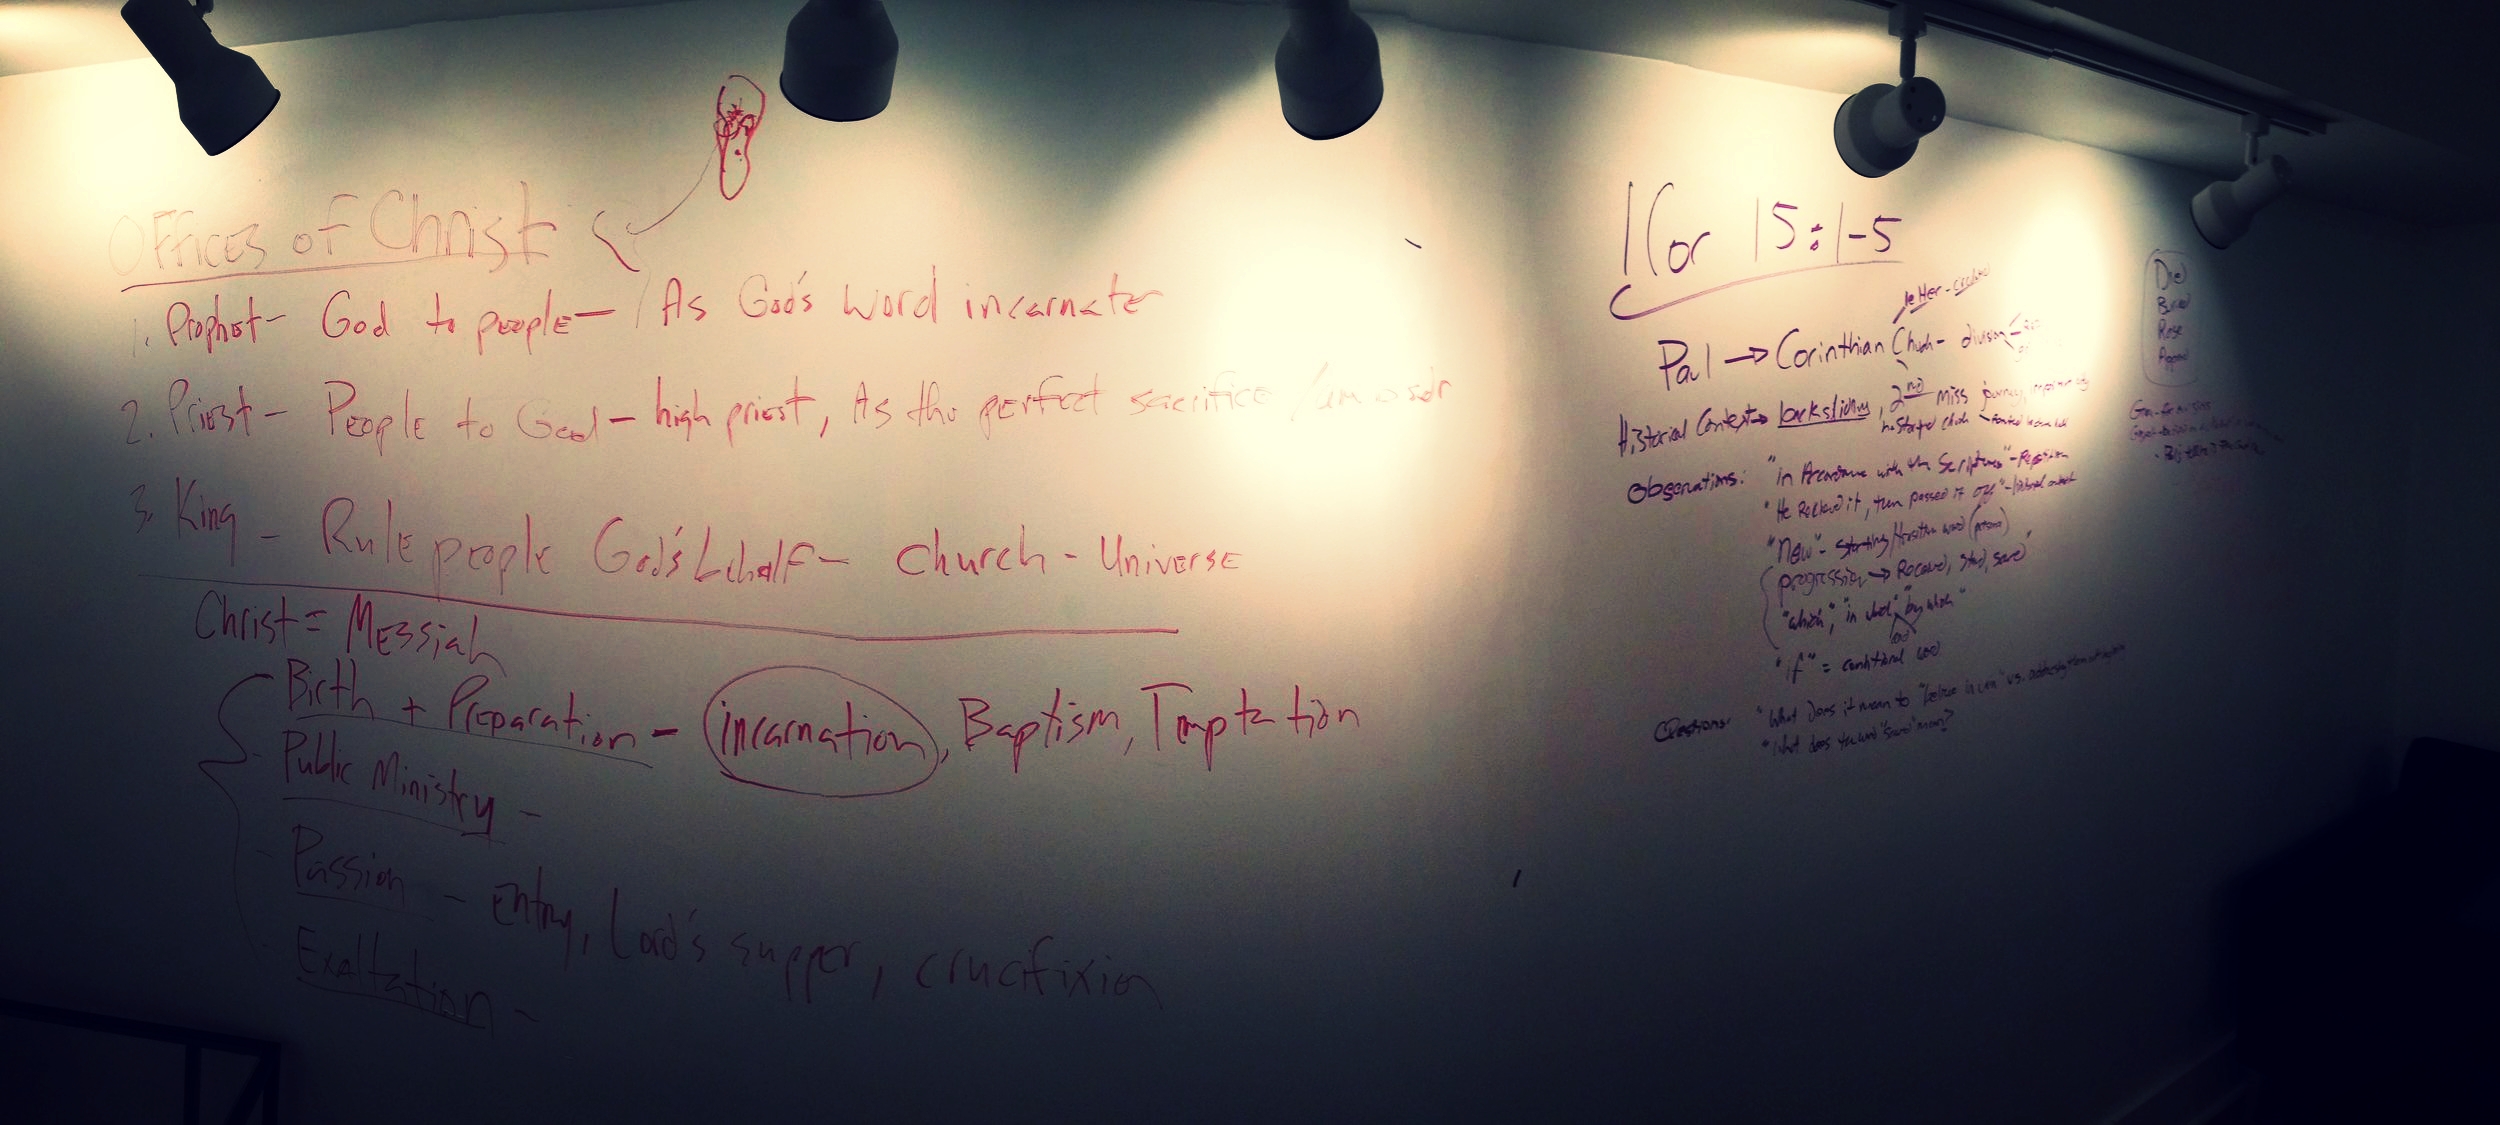 Offices of Christ
1. Prophet - God to people - As God's word incarnate
2. Priest - People to God - high priest, As the perfect sacrifice /
3. King - Rule people God's behalf - Church - Universe
Christ = Messiah
Birth + Preparation - incarnation, Baptism, Temptation
Public Ministry -
Passion - entry, Lord's supper, crucifixion
Exaltation -
1 Cor 15:1-5
letter -
Paul → Corinthian Church - division
Historical Context → backsliding, 2nd miss journey,
Observations: "in Accordance with the Scriptures" - Repetition
"He Received it, then passed it off" -
"Now" - starting/transition word
progression → Received, stand, saved
"which", "in which" "by which"
"if" = conditional word
Questions: "What does it mean to "believe in vain" vs.
"What does the word "saved" mean?
Died
Buried
Rose